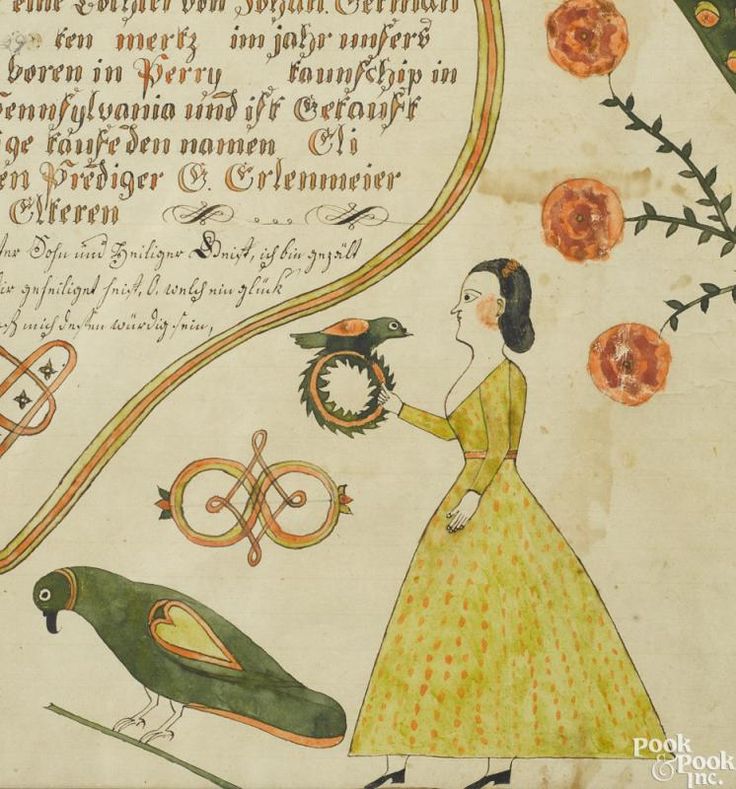 eine Tochter von Johan. German
ken mertz im jahr unsers
boren in Perry taunschip in
Pennsylvania und ist Getauft
ige taufe den namen Eli
en Prediger G. Erlenmeier
Elteren
ter Sohn und Heiliger Geist, ich bin gezält
dir geheiliget heist, O, welch ein glück
mich dessen würdig sein,
Pook
& Pook
Inc.